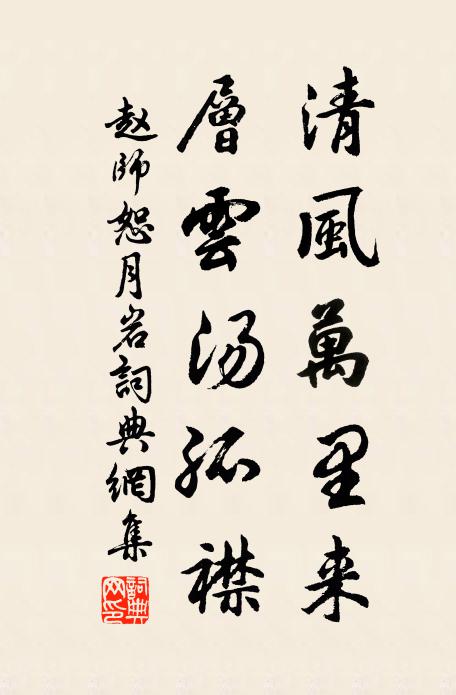 清風萬里来
層雲湯孤襟
赵師恕月岩詞典網集
詞典网印